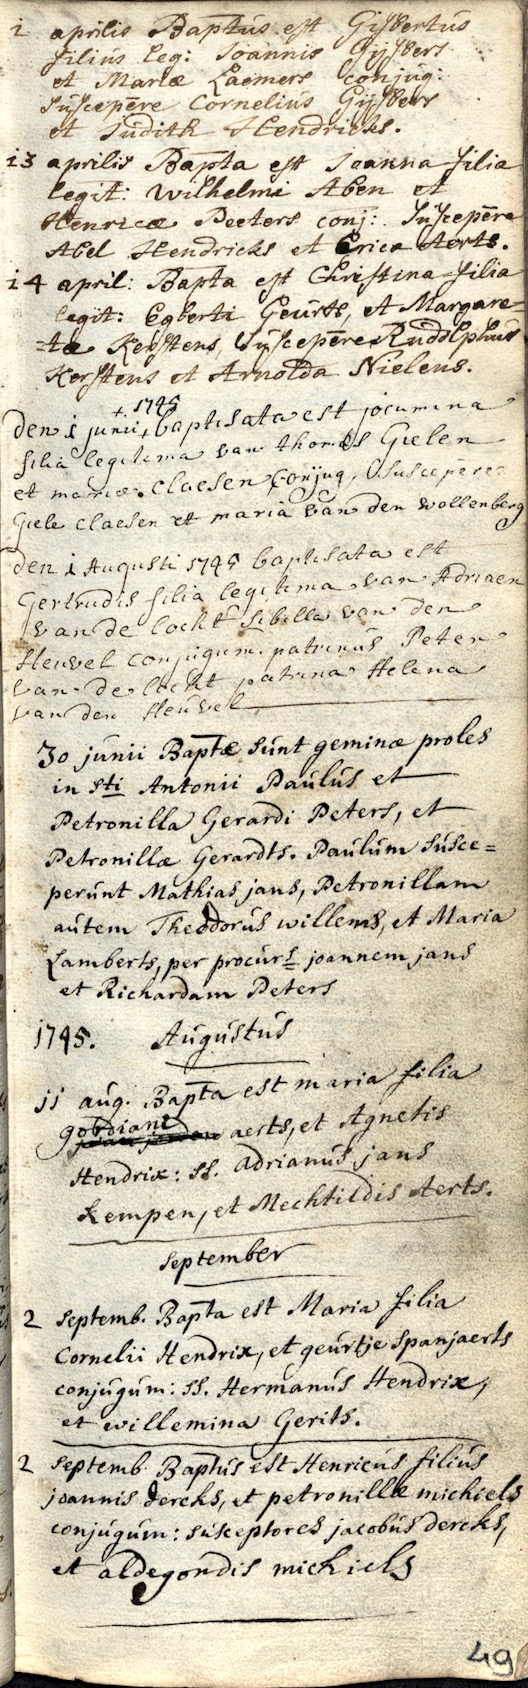 1 aprilis Baptus est Gisbertus
filius leg: Joannis Gijsbers
et Mariæ Laemers conjug:
Suscepēre Cornelius Gijsbers
et Judith Hendricks.
13 aprilis Bapta est Joanna filia
legit: Wilhelmi Aben et
Henricæ Peeters conj: Suscepēre
Abel Hendricks et Erica Aerts.
14 april: Bapta est Christina filia
legit: Egberti Geurts, et Margare=
=tæ Kerstens, Suscepēre Ruddlphus
Kerstens et Arnolda Nielens.
+ 1745
den 1 junii + baptisata est jocumina
filia legitima van thomas Gielen
et mariæ Claesen Conjug, Suscepere
Giele Claesen et maria van den wollenberg
den 1 Augusti 1745 baptisata est
Gertrudis filia legitima van Adriaen
van de locht Sibilla van den
Heuvel conjugum. patrinus Peter
van de locht patrina Helena
van den Heuvel
30 junii Baptæ sunt geminæ proles
in sti Antonii Paulus et
Petronilla Gerardi Peters, et
Petronillæ Gerardts. Paulum susce=
perunt Mathias jans, Petronillam
autem Theodorus willems, et Maria
Lamberts, per procurs joannem jans
et Richardam Peters
1745. Augustus
11 aug. Bapta est maria filia
gordiani
aerts, et Agnetis
Hendrix: ss. adrianus jans
Kempen, et Mechtildis Aerts.
september
2 septemb. Bapta est Maria filia
Cornelii Hendrix, et geurtje spanjaerts
conjugum: ss. Hermanus Hendrix,
et willemina Gerits.
2 septemb. Baptus est Henricus filius
joannis dercks, et petronillæ michiels
conjugum: susceptores jacobus dercks,
et aldegondis michiels
49